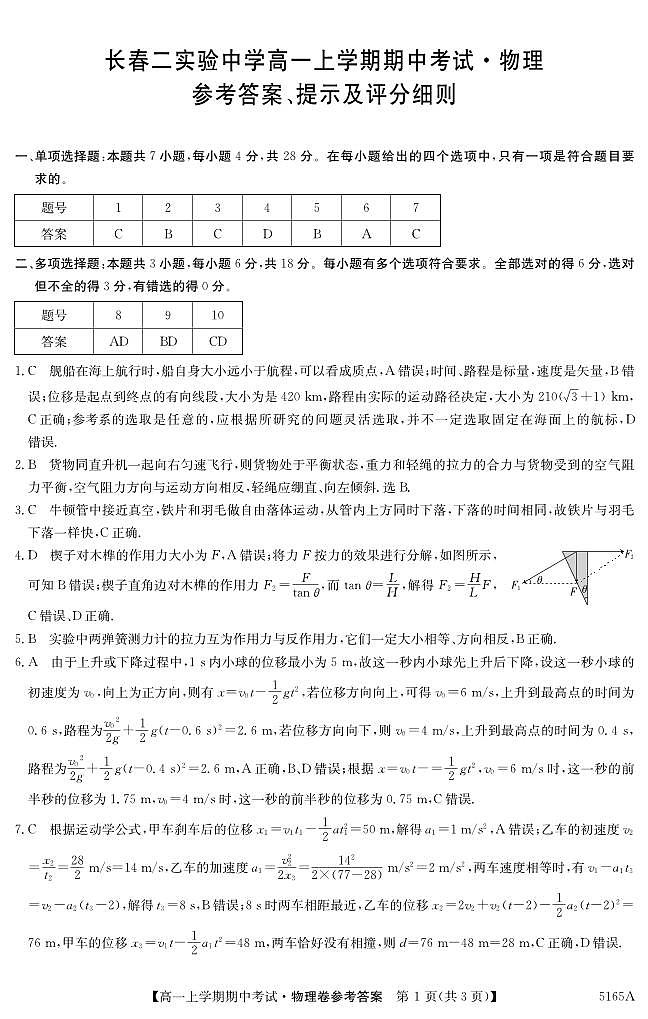 长春二实验中学高一上学期期中考试·物理
参考答案、提示及评分细则
一、单项选择题:本题共 7 小题,每小题 4 分,共 28 分。在每小题给出的四个选项中,只有一项是符合题目要
求的。
题号 1 2 3 4 5 6 7
答案 C B C D B A C
二、多项选择题:本题共 3 小题,每小题 6 分,共 18 分。每小题有多个选项符合要求。全部选对的得 6 分,选对
但不全的得 3 分,有错选的得 0 分。
题号 8 9 10
答案 AD BD CD
1. C 舰船在海上航行时,船自身大小远小于航程,可以看成质点,A 错误;时间、路程是标量,速度是矢量,B 错
误;位移是起点到终点的有向线段,大小为是 420 km,路程由实际的运动路径决定,大小为 210(√3+1) km,
C 正确;参考系的选取是任意的,应根据所研究的问题灵活选取,并不一定选取固定在海面上的航标,D
错误.
2. B 货物同直升机一起向右匀速飞行,则货物处于平衡状态,重力和轻绳的拉力的合力与货物受到的空气阻
力平衡,空气阻力方向与运动方向相反,轻绳应绷直、向左倾斜. 选 B.
3. C 牛顿管中接近真空,铁片和羽毛做自由落体运动,从管内上方同时下落,下落的时间相同,故铁片与羽毛
下落一样快,C 正确.
4. D 楔子对木榫的作用力大小为 F,A 错误;将力 F 按力的效果进行分解,如图所示,
可知 B 错误;楔子直角边对木榫的作用力 F₂=F/tan θ,而 tan θ=L/H,解得 F₂=H/L F,
C 错误、D 正确.
F₁ θ F θ F₂
5. B 实验中两弹簧测力计的拉力互为作用力与反作用力,它们一定大小相等、方向相反,B 正确.
6. A 由于上升或下降过程中,1 s 内小球的位移最小为 5 m,故这一秒内小球先上升后下降,设这一秒小球的
初速度为 v₀,向上为正方向,则有 x=v₀t-1/2 gt²,若位移方向向上,可得 v₀=6 m/s,上升到最高点的时间为
0.6 s,路程为 v₀²/2g+1/2 g(t-0.6 s)²=2.6 m,若位移方向向下,则 v₀=4 m/s,上升到最高点的时间为 0.4 s,
路程为 v₀²/2g+1/2 g(t-0.4 s)²=2.6 m,A 正确,B、D 错误;根据 x=v₀t-=1/2 gt²,v₀=6 m/s 时,这一秒的前
半秒的位移为 1.75 m,v₀=4 m/s 时,这一秒的前半秒的位移为 0.75 m,C 错误.
7. C 根据运动学公式,甲车刹车后的位移 x₁=v₁t₁-1/2 at₁²=50 m,解得 a₁=1 m/s²,A 错误;乙车的初速度 v₂
=x₂/t₂=28/2 m/s=14 m/s,乙车的加速度 a₁=v₂²/2x₃=14²/2×(77-28) m/s²=2 m/s²,两车速度相等时,有 v₁-a₁t₃
=v₂-a₂(t₃-2),解得 t₃=8 s,B 错误;8 s 时两车相距最近,乙车的位移 x₂=2v₂+v₂(t-2)-1/2 a₂(t-2)²=
76 m,甲车的位移 x₃=v₁t-1/2 a₁t²=48 m,两车恰好没有相撞,则 d=76 m-48 m=28 m,C 正确,D 错误.
【高一上学期期中考试·物理卷参考答案 第 1 页(共 3 页)】 5165A